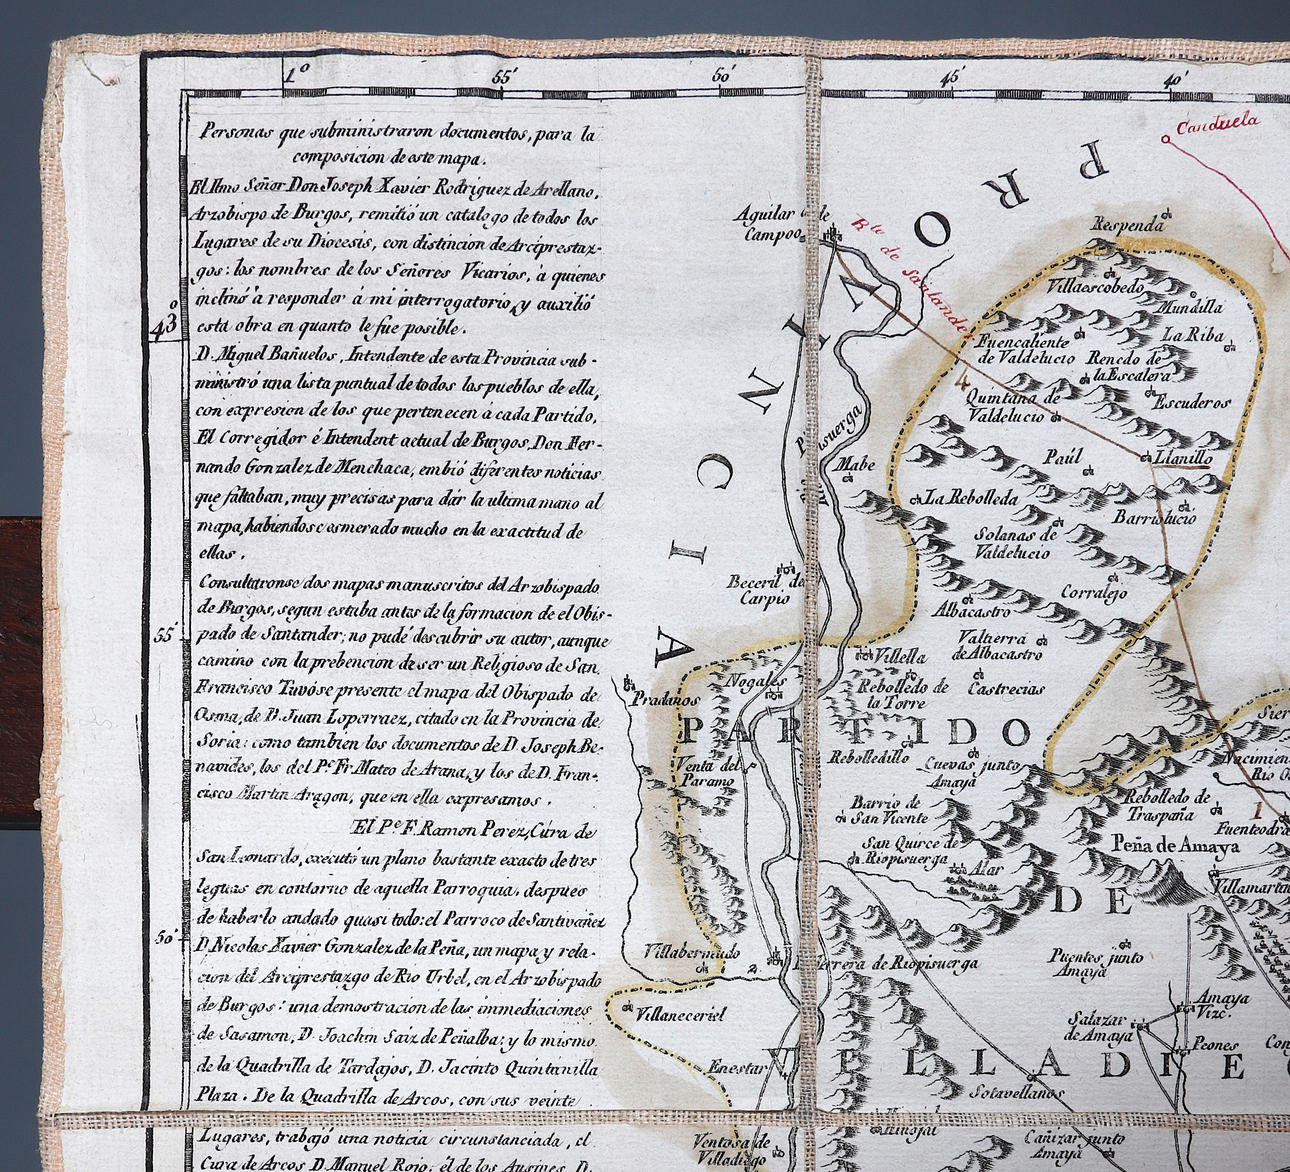 1º
55'
50'
45'
40'
43º
55'
50'
Personas que subministraron documentos, para la
composicion de este mapa.
El Ilmo Señor Don Joseph Xavier Rodriguez de Arellano,
Arzobispo de Burgos, remitió un catalogo de todos los
Lugares de su Diocesis, con distincion de Arciprestaz-
gos: los nombres de los Señores Vicarios, à quienes
inclinó à responder á mi interrogatorio, y auxilió
esta obra en quanto le fue posible.
D. Miguel Bañuelos, Intendente de esta Provincia sub-
ministró una lista puntual de todos los pueblos de ella,
con expresion de los que pertenecen a cada Partido.
El Corregidor é Intendent actual de Burgos, Don Fer-
nando Gonzalez de Menchaca, embió diferentes noticias
que faltaban, muy precisas para dár la ultima mano al
mapa, habiendose esmerado mucho en la exactitud de
ellas.
Consultaronse dos mapas manuscritos del Arzobispado
de Burgos, segun estaba antes de la formacion de el Obis-
pado de Santander; no pude descubrir su autor, aunque
camino con la prebencion de ser un Religioso de San
Francisco Tuvose presente el mapa del Obispado de
Osma, de D. Juan Loperraez, citado en la Provincia de
Soria: como tambien los documentos de D. Joseph Be-
navides, los del Pe. Fr. Mateo de Arana, y los de D. Fran-
cisco Martin Aragon, que en ella expresamos.
El Pe. F. Ramon Perez, Cura de
San Leonardo, executó un plano bastante exacto de tres
leguas en contorno de aquella Parroquia, despues
de haberlo andado quasi todo: el Parroco de Santivañez
D. Nicolas Xavier Gonzalez de la Peña, un mapa y rela-
cion del Arciprestazgo de Rio Urbel, en el Arzobispado
de Burgos: una demostracion de las immediaciones
de Sasamon, D. Joachin Saiz de Peñalba: y lo mismo
de la Quadrilla de Tardajos, D. Jacinto Quintanilla
Plaza. De la Quadrilla de Arcos, con sus veinte
Lugares, trabajó una noticia circunstanciada, el
Cura de Arcos D. Manuel Rojo: él de los Ausines, D.
PROVINCIA
Canduela
Aguilar de
Campoo
Rte de Santander
Respenda
Villaescobedo
Mundilla
La Riba
Fuencaliente
de Valdelucio
Renedo de
la Escalera
4
Quintana de
Valdelucio
Escuderos
Pisuerga
Mabe
Paúl
Llanillo
La Rebolleda
Barriolucio
Solanas de
Valdelucio
Beceril de
Carpio
Corralejo
Albacastro
Valtierra
de Albacastro
Villella
Nogales
Pradanos
Rebolledo de
la Torre
Castrecias
PARTIDO
Venta del
Paramo
Rebolledillo
Cuevas junto
Amaya
Barrio de
San Vicente
Rebolledo de
Traspaña
1
San Quirce de
Riopisuerga
Peña de Amaya
Alar
DE
Villabermudo
2
Herrera de Riopisuerga
Puentes junto
Amaya
Villaneceriel
Amaya
Vizc.
Salazar
de Amaya
Peones
Enestar
VILLADIE
Sotavellanos
Hinojal
Cañizar junto
Amaya
Ventosa de
Villadiego